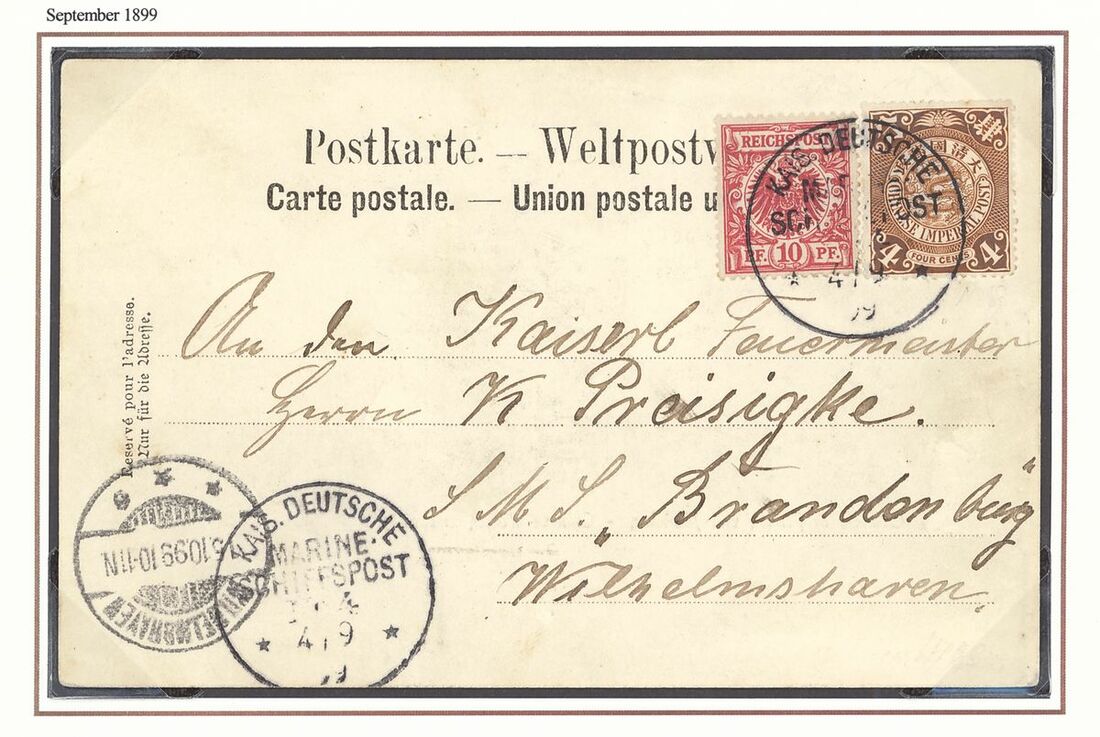 September 1899
Postkarte. — Weltpostv
Carte postale. — Union postale u
REICHSPOST
PF. 10 PF.
大清國
CHINESE IMPERIAL POST
4 FOUR CENTS 4
KAIS. DEUTSCHE
4/9
99
An den Kaiserl Feuermeister
Herrn K Preisigke.
S M S. „Brandenburg"
Wilhelmshaven.
Reservé pour l'adresse.
Nur für die Adresse.
WILHELMSHAVEN
5.10.99.10-11N
KAIS. DEUTSCHE
MARINE-
SCHIFFSPOST
4/9